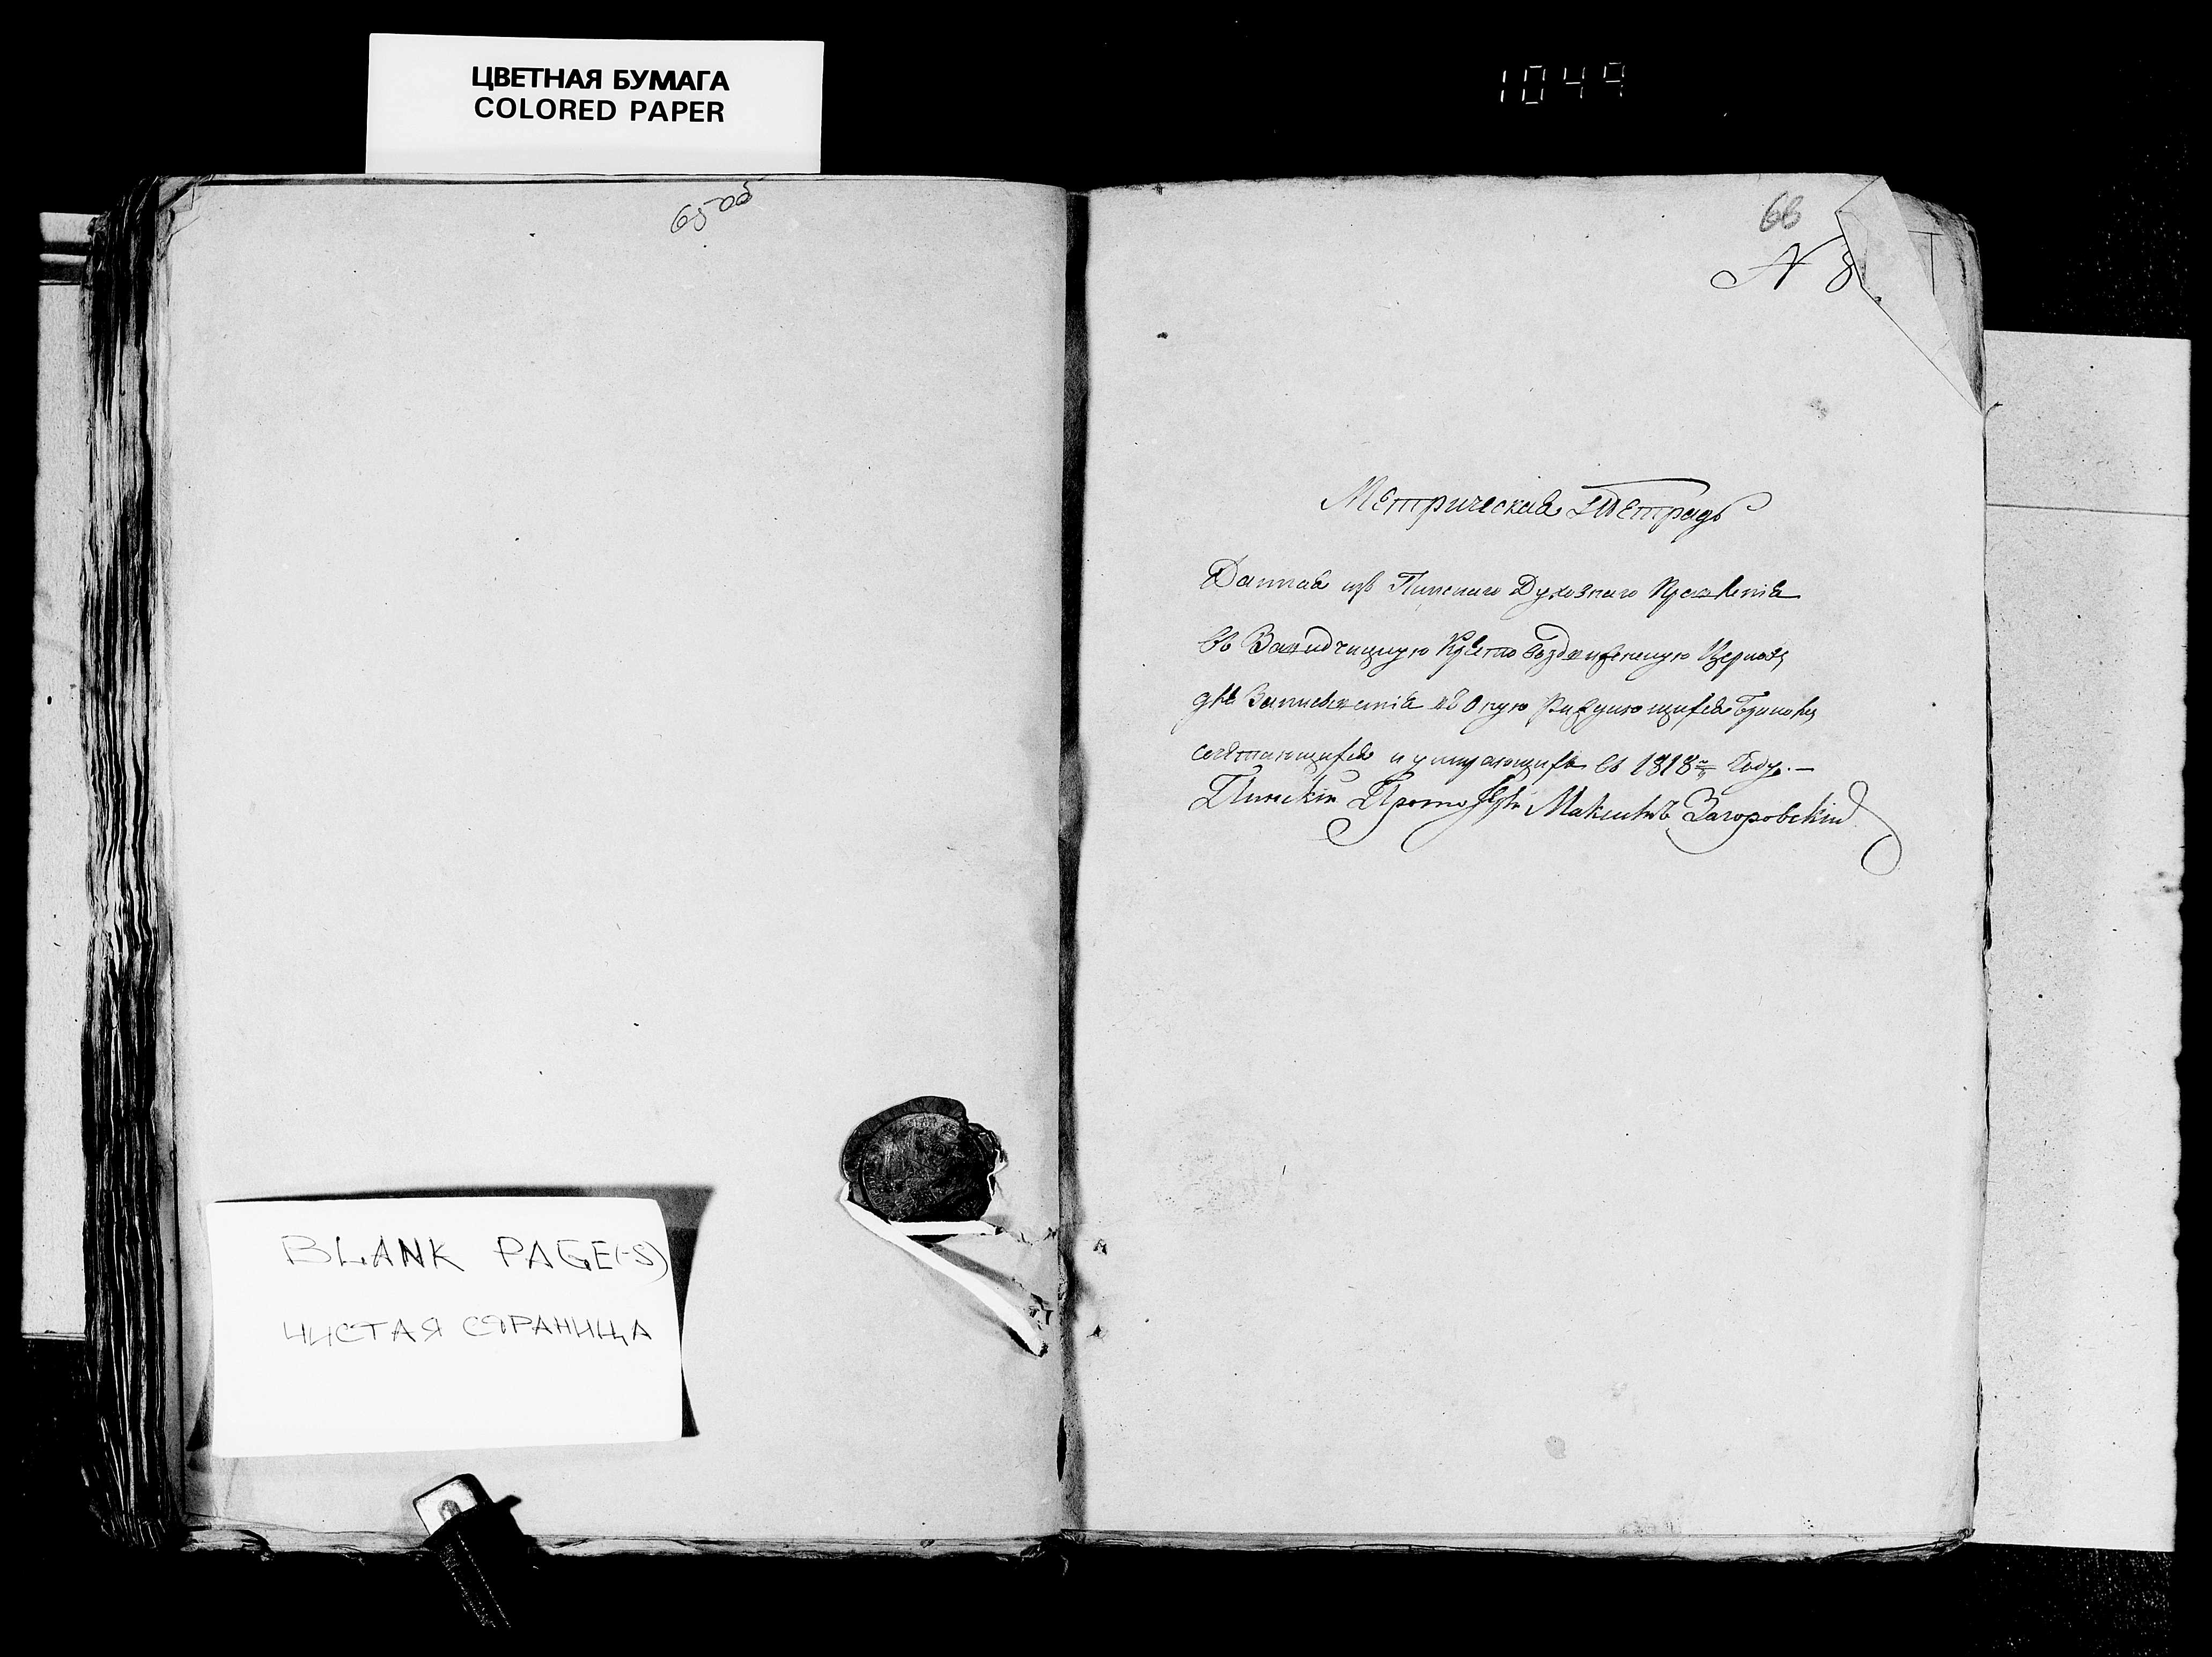 ЦВЕТНАЯ БУМАГА
COLORED PAPER
1049
65 об
66
N 8
Метрическая Тетрадь
Данная изъ Пинскаго Духовнаго Правленія
въ Вавидчицкую Кресто воздвиженскую Церковь
для Записыванія въ Оную Раждающихся Бракомъ
сочетающихся и умирающихъ въ 1818 Году.
Пинскій Протоіерей Максимъ Загоровскій
BLANK PAGE(-S)
ЧИСТАЯ СТРАНИЦА